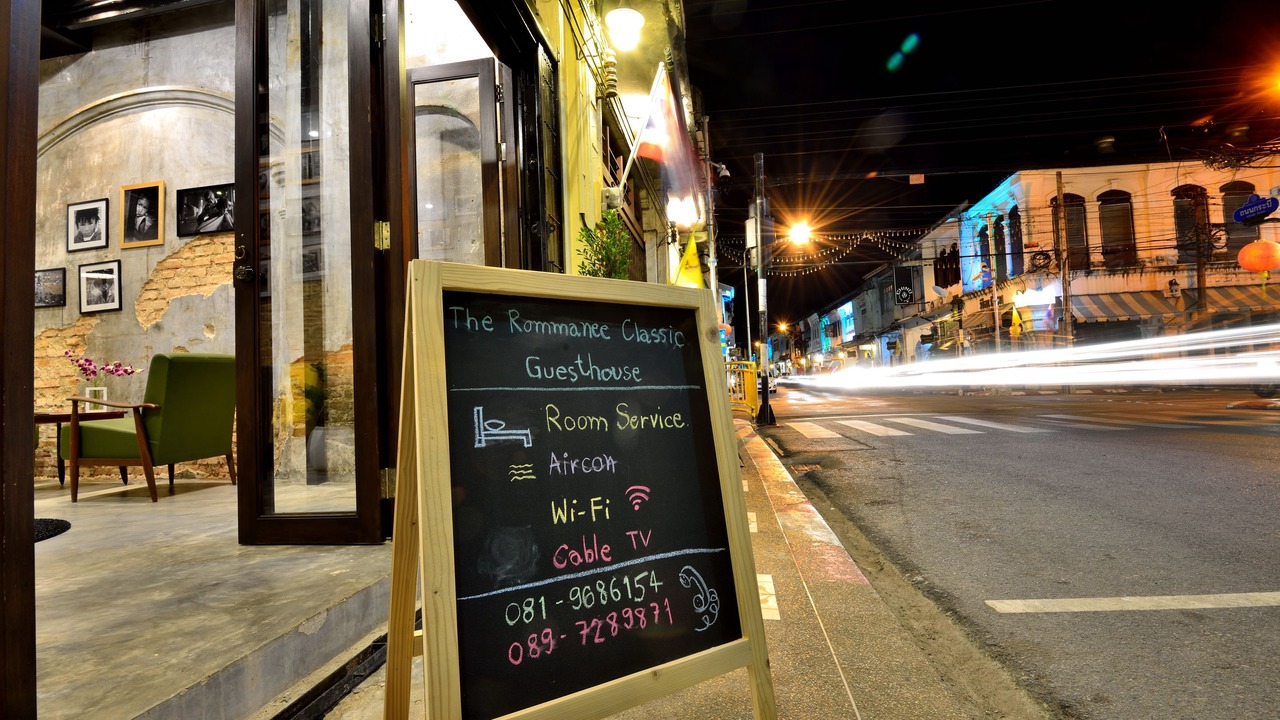 The Rommanee Classic
Guesthouse
Room Service.
Aircon
Wi-Fi
Cable TV
081-9686154
089-7289871
ถนนกระบี่